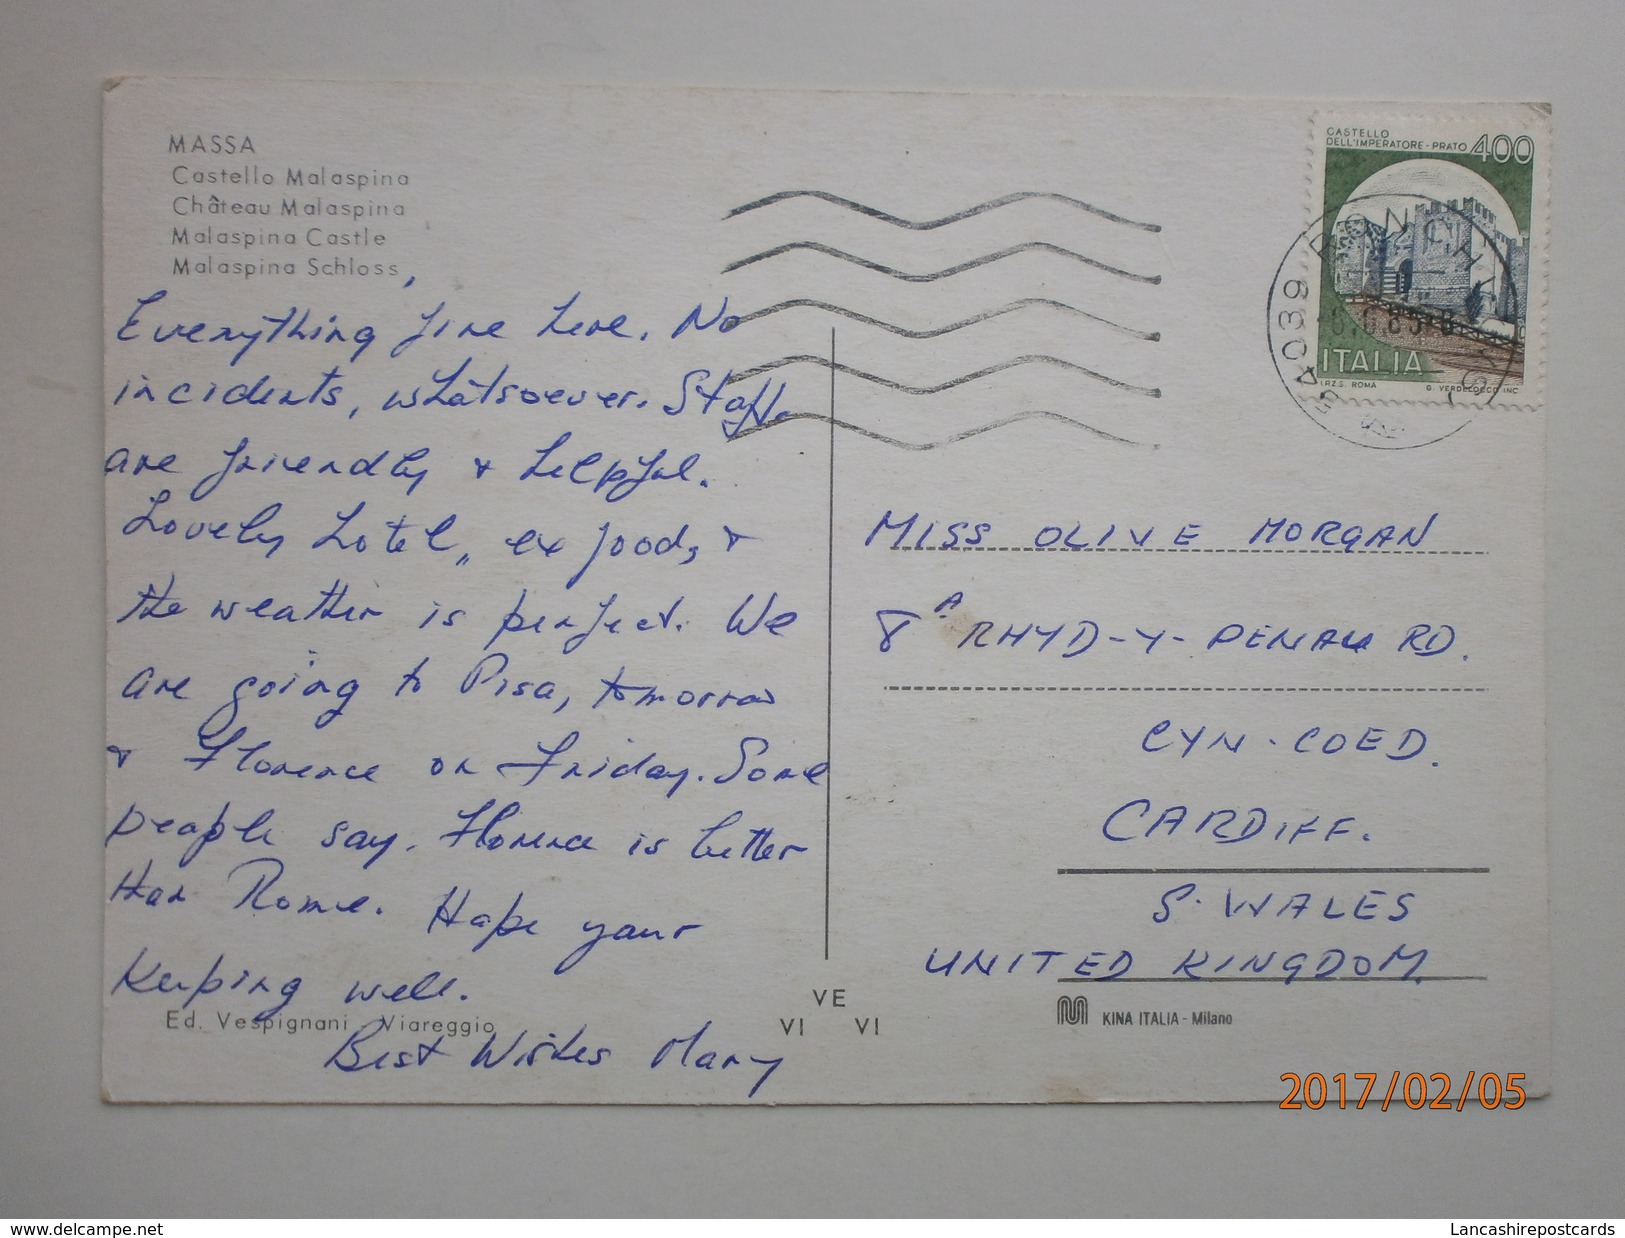 MASSA
Castello Malaspina
Château Malaspina
Malaspina Castle
Malaspina Schloss
Everything fine here. No
incidents, whatsoever. Staff.
are friendly & helpful.
Lovely hotel, ex food, &
the weather is perfect. We
are going to Pisa, tomorrow
& Florence on Friday. Some
people say. Florence is better
than Rome. Hope your
keeping well.
Best Wishes Mary
Ed. Vespignani Viareggio
VE
VI VI
CASTELLO
DELL'IMPERATORE - PRATO 400
ITALIA
I.P.Z.S. ROMA G. VERDELOCCO INC
54039 RONCHI
MISS OLIVE MORGAN
8A RHYD-Y-PENAU RD.
CYN-COED.
CARDIFF.
S. WALES
UNITED KINGDOM.
KINA ITALIA - Milano
2017/02/05
www.delcampe.net
Lancashirepostcards